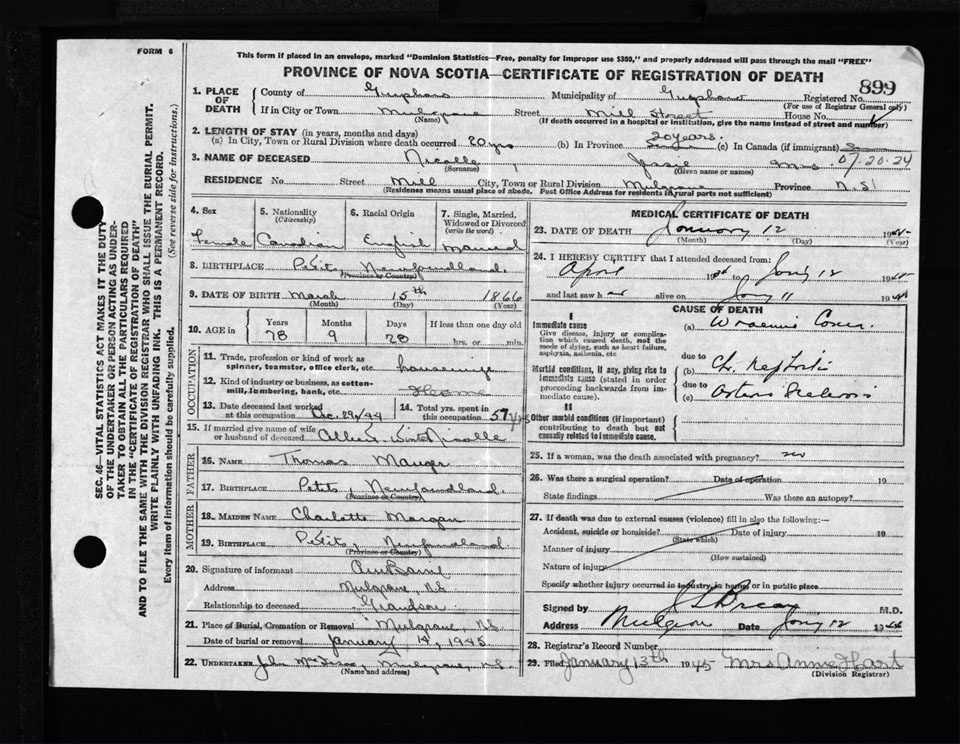 FORM 6
This form if placed in an envelope, marked "Dominion Statistics—Free, penalty for improper use $300," and properly addressed will pass through the mail "FREE"
PROVINCE OF NOVA SCOTIA—CERTIFICATE OF REGISTRATION OF DEATH
899
SEC. 46—VITAL STATISTICS ACT MAKES IT THE DUTY
OF THE UNDERTAKER OR PERSON ACTING AS UNDER-
TAKER TO OBTAIN ALL THE PARTICULARS REQUIRED
IN THE "CERTIFICATE OF REGISTRATION OF DEATH"
AND TO FILE THE SAME WITH THE DIVISION REGISTRAR WHO SHALL ISSUE THE BURIAL PERMIT.
WRITE PLAINLY WITH UNFADING INK. THIS IS A PERMANENT RECORD.
Every item of information should be carefully supplied. (See reverse side for instructions.)
1. PLACE OF DEATH County of Guysboro Municipality of Guysboro Registered No.
(For use of Registrar General only)
If in City or Town Mulgrave Street Mill Street House No.
(Name) (If death occurred in a hospital or institution, give the name instead of street and number)
2. LENGTH OF STAY (in years, months and days)
(a) In City, Town or Rural Division where death occurred 20 yrs (b) In Province 20 years. (c) In Canada (if immigrant)
3. NAME OF DECEASED Nicolle, Jessie Mrs 07-20-24
(Surname) (Given name or names)
RESIDENCE No. Street Mill City, Town or Rural Division Mulgrave Province N.S.
(Residence means usual place of abode. Post Office Address for residents in rural parts not sufficient)
4. Sex Female
5. Nationality (Citizenship) Canadian
6. Racial Origin English
7. Single, Married, Widowed or Divorced (write the word) Married
8. BIRTHPLACE Petits, Newfoundland.
(Province or Country)
9. DATE OF BIRTH March 15th 1866
(Month) (Day) (Year)
10. AGE in Years 78 Months 9 Days 28 If less than one day old hrs. or min.
OCCUPATION
11. Trade, profession or kind of work as spinner, teamster, office clerk, etc. housewife
12. Kind of industry or business, as cotton-mill, lumbering, bank, etc. Home
13. Date deceased last worked at this occupation Dec. 29/44
14. Total yrs. spent in this occupation 57 yrs
15. If married give name of wife or husband of deceased Albert Nicolle
FATHER
16. NAME Thomas Mauger
17. BIRTHPLACE Petits, Newfoundland.
(Province or Country)
MOTHER
18. MAIDEN NAME Charlotte
19. BIRTHPLACE Petits, Newfoundland
(Province or Country)
20. Signature of informant
Address Mulgrave, N.S.
Relationship to deceased Grandson
21. Place of Burial, Cremation or Removal Mulgrave, N.S.
Date of burial or removal January 14, 1945
22. UNDERTAKER John McIsaac, Mulgrave, N.S.
(Name and address)
MEDICAL CERTIFICATE OF DEATH
23. DATE OF DEATH January 12 1945
(Month) (Day) (Year)
24. I HEREBY CERTIFY that I attended deceased from:
April 19 to Jany 12 1945
and last saw her alive on Jany 11 19
CAUSE OF DEATH
I
Immediate cause
Give disease, injury or complication which caused death, not the mode of dying, such as heart failure, asphyxia, asthenia, etc
(a) Uraemic Coma.
due to
Morbid conditions, if any, giving rise to immediate cause (stated in order proceeding backwards from immediate cause).
(b) Ch. Nephritis
due to
(c) Arterio Sclerosis
II
Other morbid conditions (if important) contributing to death but not causally related to immediate cause.
25. If a woman, was the death associated with pregnancy? no
26. Was there a surgical operation? Date of operation 19
State findings Was there an autopsy?
27. If death was due to external causes (violence) fill in also the following:—
Accident, suicide or homicide? Date of injury 19
(State which)
Manner of injury
(How sustained)
Nature of injury
Specify whether injury occurred in industry, in home, or in public place
Signed by M.D.
Address Mulgrave Date Jany 12 19
28. Registrar's Record Number
29. Filed January 13th 1945 Mrs Anne Hart
(Division Registrar)